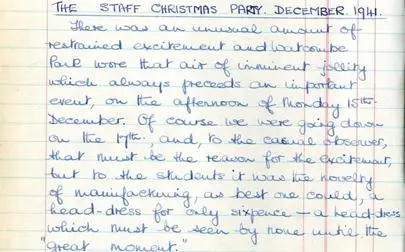 THE STAFF CHRISTMAS PARTY. DECEMBER. 1941.
There was an unusual amount of
restrained excitement and Watcombe
Park wore that air of imminent jollity
which always precedes an important
event, on the afternoon of Monday 15th
December. Of course we were going down
on the 17th, and, to the casual observer,
that must be the reason for the excitement,
but to the students it was the novelty
of manufacturing, as best one could, a
head-dress for only sixpence – a head-dress
which must be seen by none until the
"great moment."